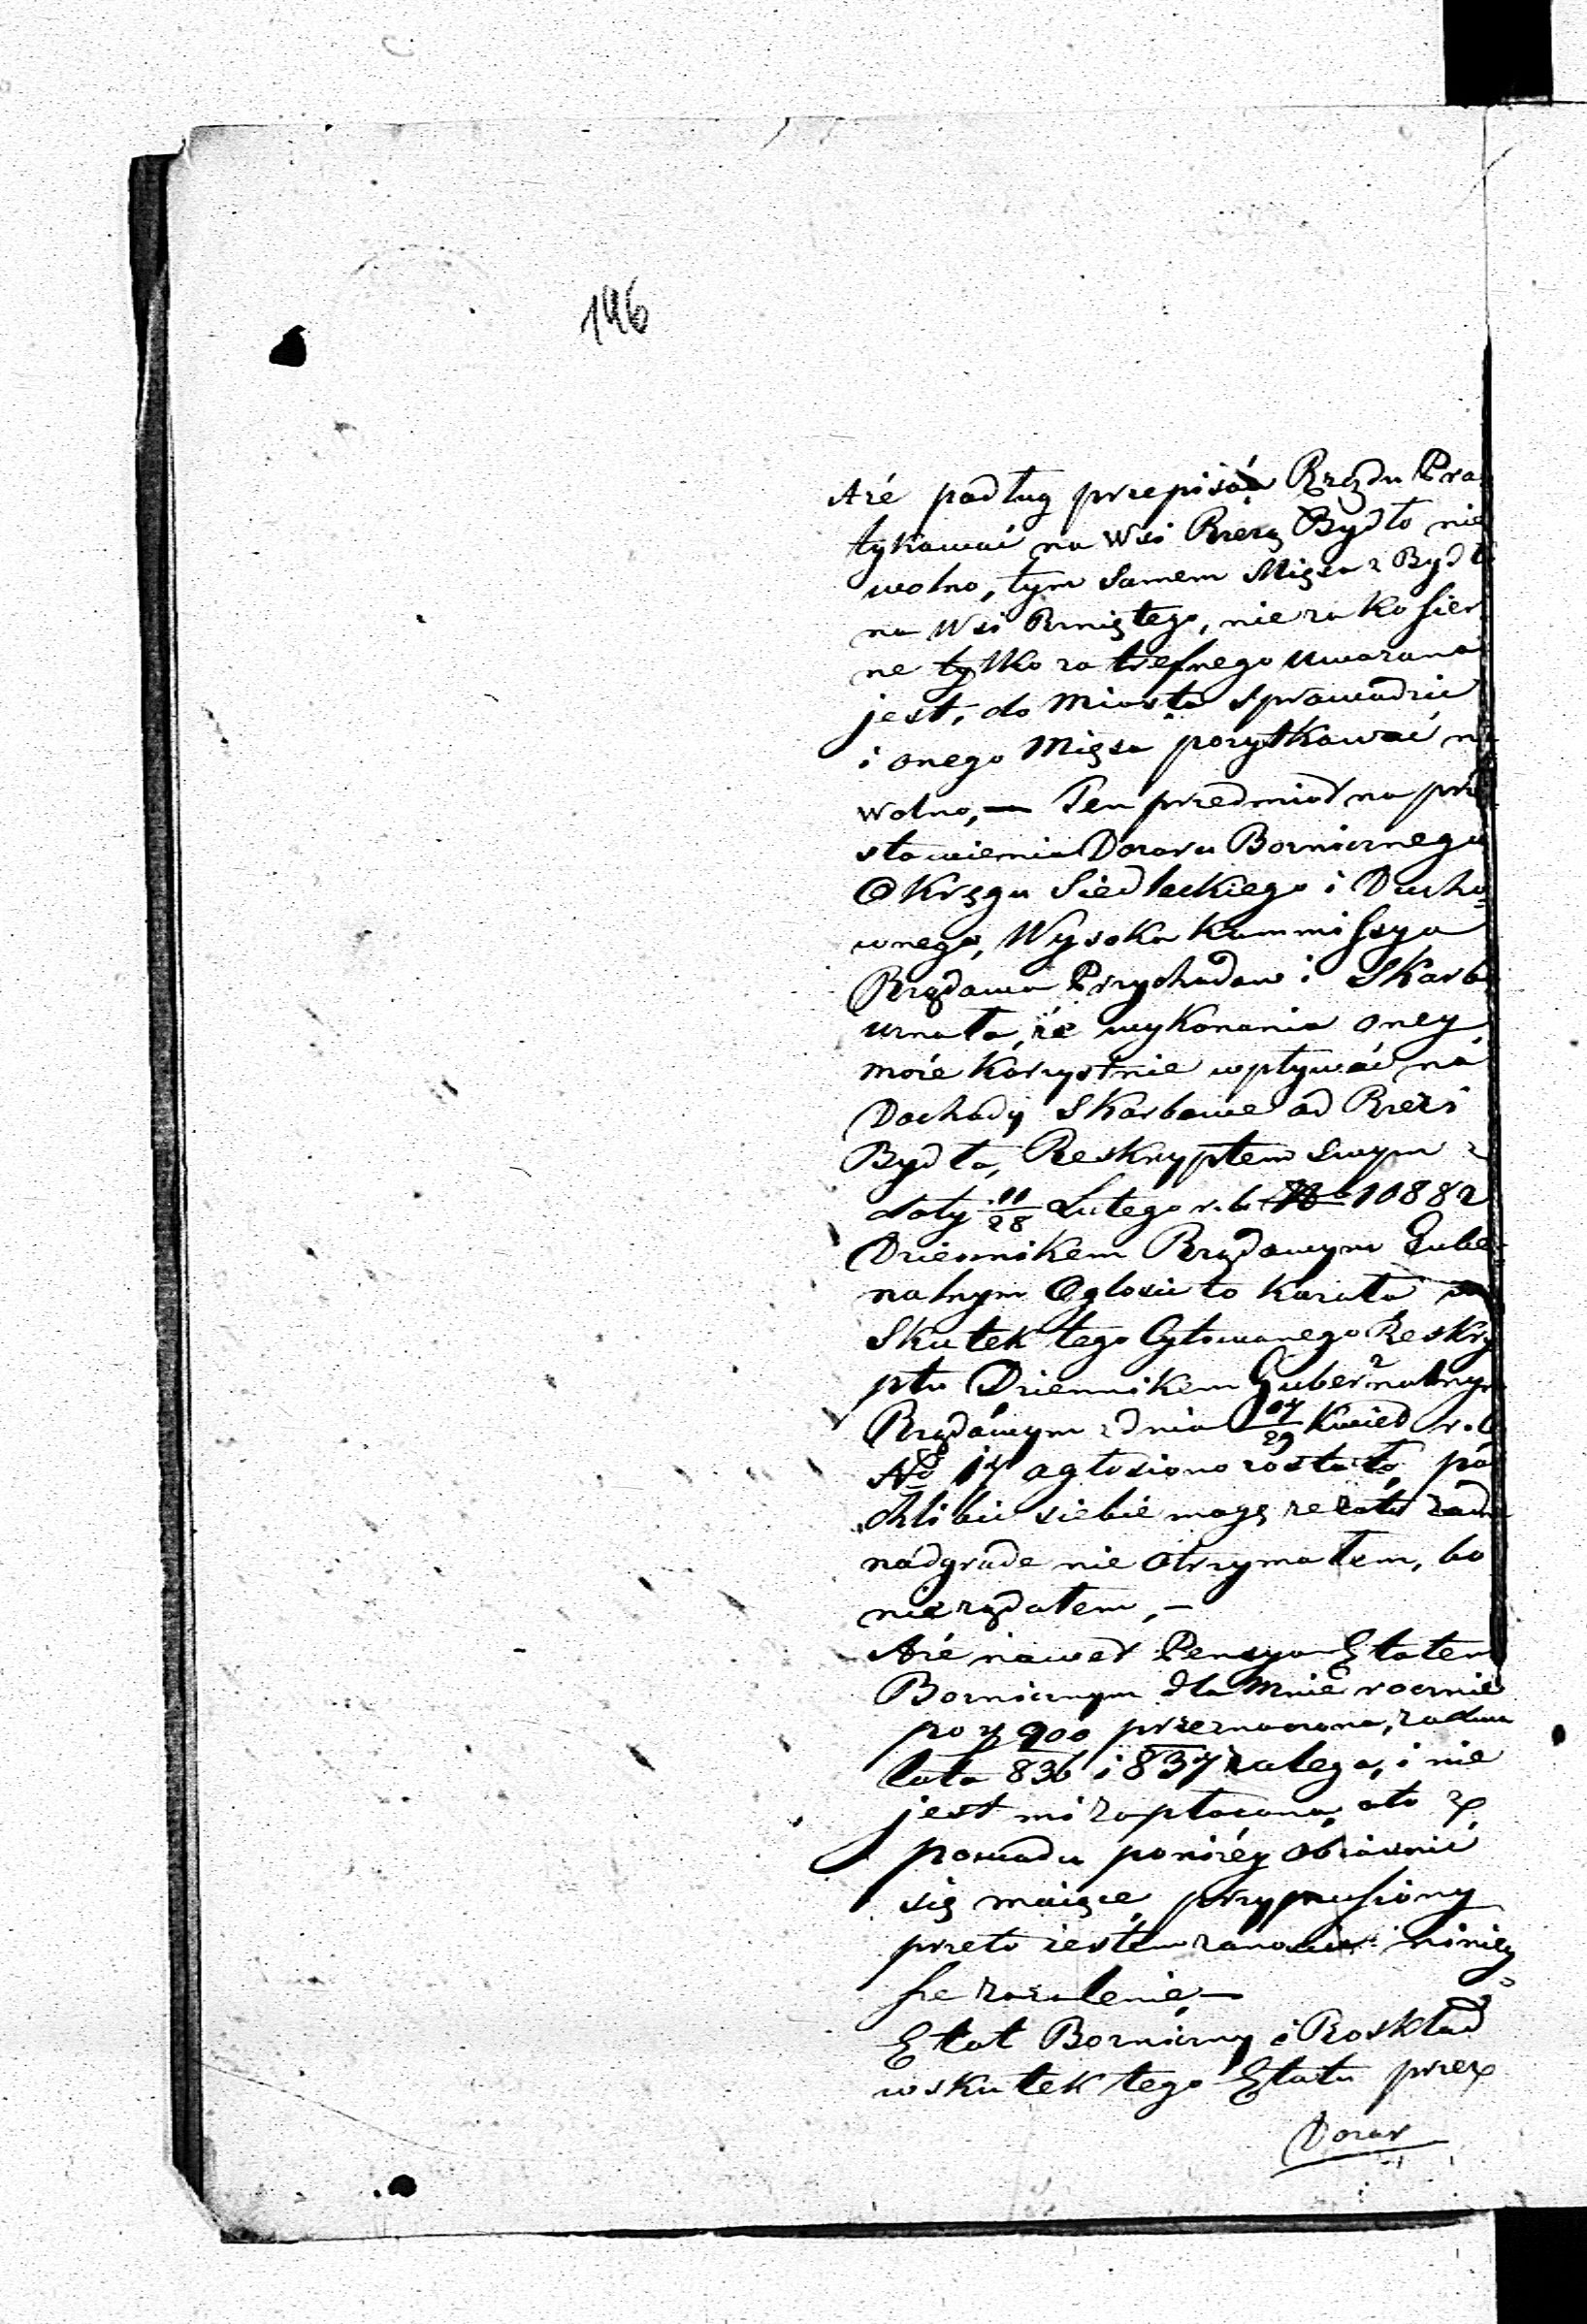 146
Aże podług przepisów Rządu Pra
tykować na Wsi Rzezą Bydło nie
wolno, tym Samem Mięsa z Bydł
na Wsi Rzniętego, nie za Koszer
ne tylko za trefnego uważana
jest, do Miasta sprowadzić
i onego Mięsa pozytkować ni
wolno, — Ten przedmiot na prze
stawienia Dozoru Boznicznego
Okręgu Siedleckiego i Ducho=
wnego, Wysoka Kommissya
Rządowa Przychodow i Skarb
uznała, że wykonania oney
może korzystnie wpływać na
Dochody Skarbowe od Rzezi
Bydła, Reskryptem swym z
daty 11/28 Lutego r. b. No 10882
Dziennikem Rządowym Gube=
nalnym Oglosić to kazała
Skutek tego Cytowanego Reskry
ptu Dziennikem Gubernalnym
Rządowym z dnia 17/29 Kwied r. b
No 17 ogłosiono zostało, po
chlibić siebie mogę że za to żadn
nadgrode nie Otrzymałem, bo
nie rządałem, —
Aże nawet Pensya Etatem
Boznicznym dla Mnie rocznie
po zł 900 przeznaczona, za dwa
lata 836 i 837 zalega, i nie
jest mi zapłacona, a to z
powodu poniżey obiaśnić
się maiące, przymuszony
przeto iestem zanosić niniey=
sze zazalenie —
Etat Bozniczny i Roskład
w skutek tego Etatu przez
Dozor